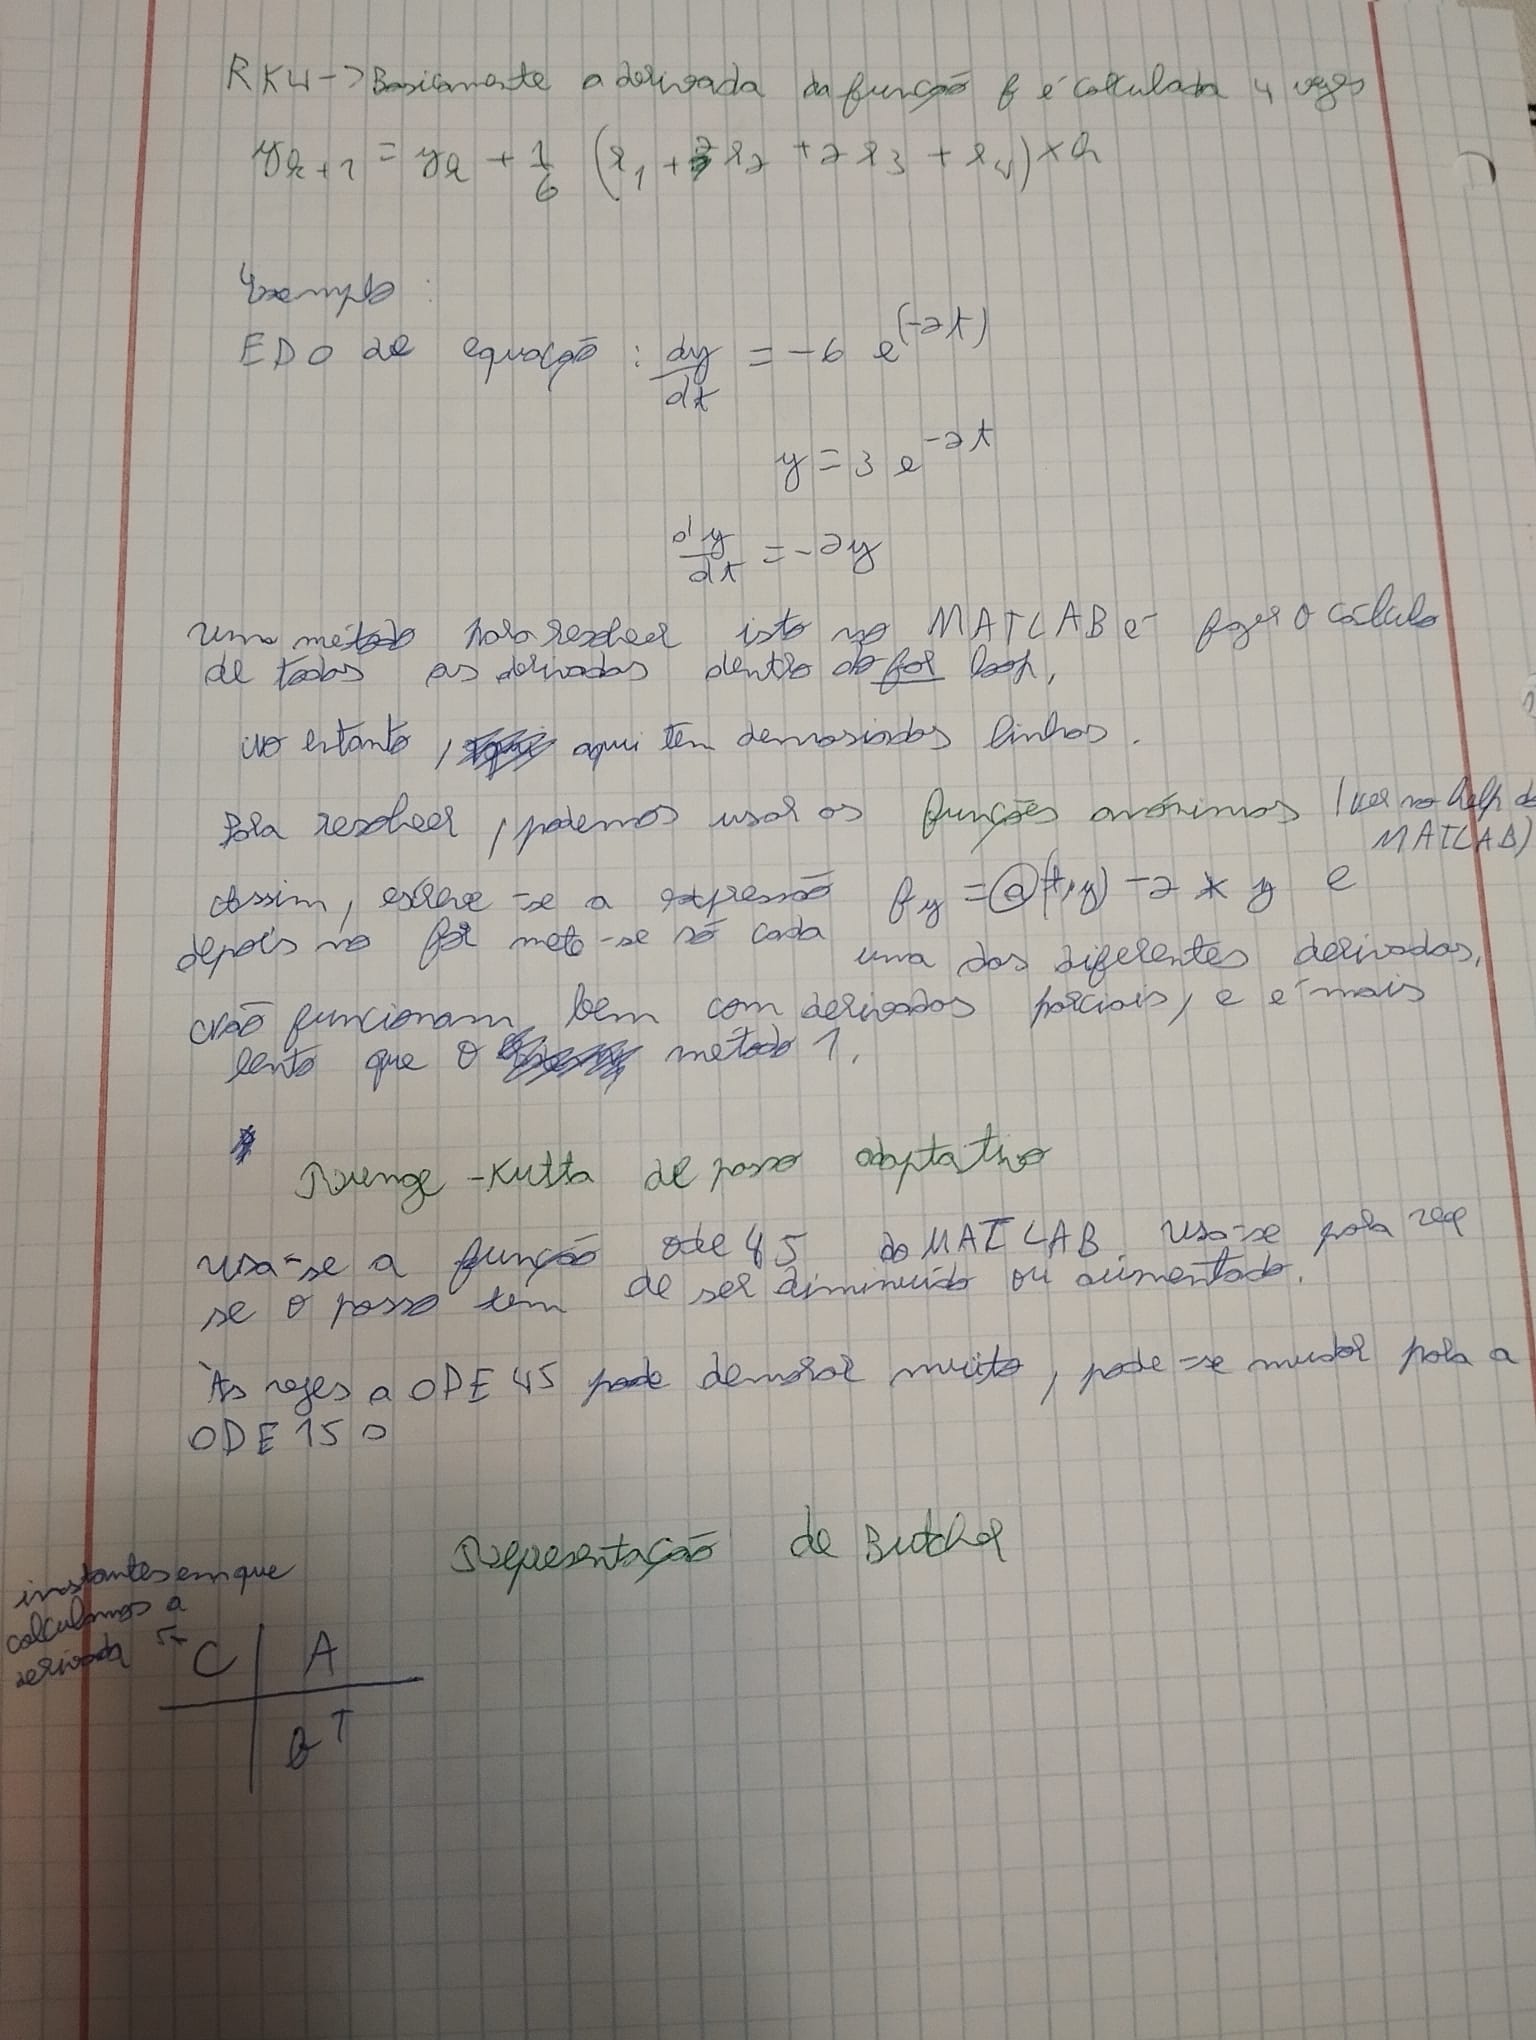 RK4 -> Basicamente a derivada da função f é calculada 4 vezes
y_{k+1} = y_k + 1/6 (r_1 + 2 r_2 + 2 r_3 + r_4) × h
Exemplo :
EDO de equação : dy/dt = -6 e^(-2t)
y = 3 e^{-2t}
dy/dt = -2y
Um método para resolver isto no MATLAB é fazer o cálculo
de todas as derivadas dentro do for loop,
No entanto, aqui tem demasiadas linhas.
Para resolver, podemos usar as funções anónimas (ver no help do
MATLAB)
Assim, escreve-se a expressão fy = @(t,y) -2 * y e
depois no for mete-se só cada uma das diferentes derivadas,
Não funcionam bem com derivadas parciais, e é mais
lento que o método 1,
Runge-Kutta de passo adaptativo
Usa-se a função ode 45 do MATLAB. Usa-se para ver
se o passo tem de ser diminuído ou aumentado.
Às vezes a ODE 45 pode demorar muito, pode-se mudar para a
ODE 15 s
Representação de Butcher
instantes em que
calculamos a
derivada
C | A
b^T